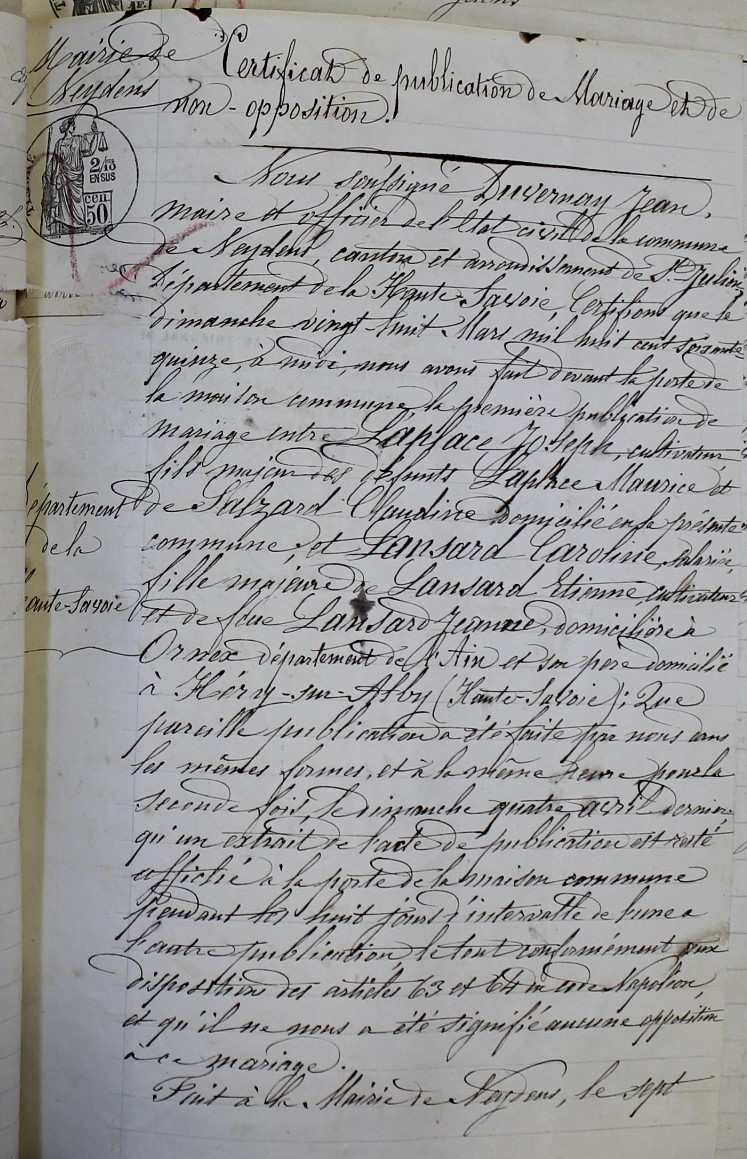 Mairie de
Neydens
Certificat de publication de Mariage et de
non-opposition.
2/10
EN SUS
CEN.
50
Nous soussigné Duvernay Jean,
maire et officier de l'Etat civil de la commune
de Neydens, canton et arrondissement de St Julien,
Département de la Haute-Savoie, Certifions que le
dimanche vingt-huit Mars mil huit cent soixante
quinze, à midi, nous avons fait devant la porte de
la maison commune la première publication de
mariage entre Laplace Joseph, cultivateur
fils majeur des défunts Laplace Maurice et
de Salzard Claudine domicilié en la présente
commune, et Lansard Caroline, salariée,
fille majeure de Lansard Etienne, cultivateur
et de feue Lansard Jeanne, domiciliée à
Ornex département de l'Ain et son père domicilié
à Héry-sur-Alby (Haute-Savoie); Que
pareille publication a été faite par nous dans
les mêmes formes, et à la même heure pour la
seconde fois, le dimanche quatre avril dernier
qu'un extrait de l'acte de publication est resté
affiché à la porte de la maison commune
pendant les huit jours d'intervalle de l'une a
l'autre publication, le tout conformément aux
dispositions des articles 63 et 64 du code Napoléon,
et qu'il ne nous a été signifié aucune opposition
a ce mariage.
Fait à la Mairie de Neydens, le sept
Département
de la
Haute-Savoie